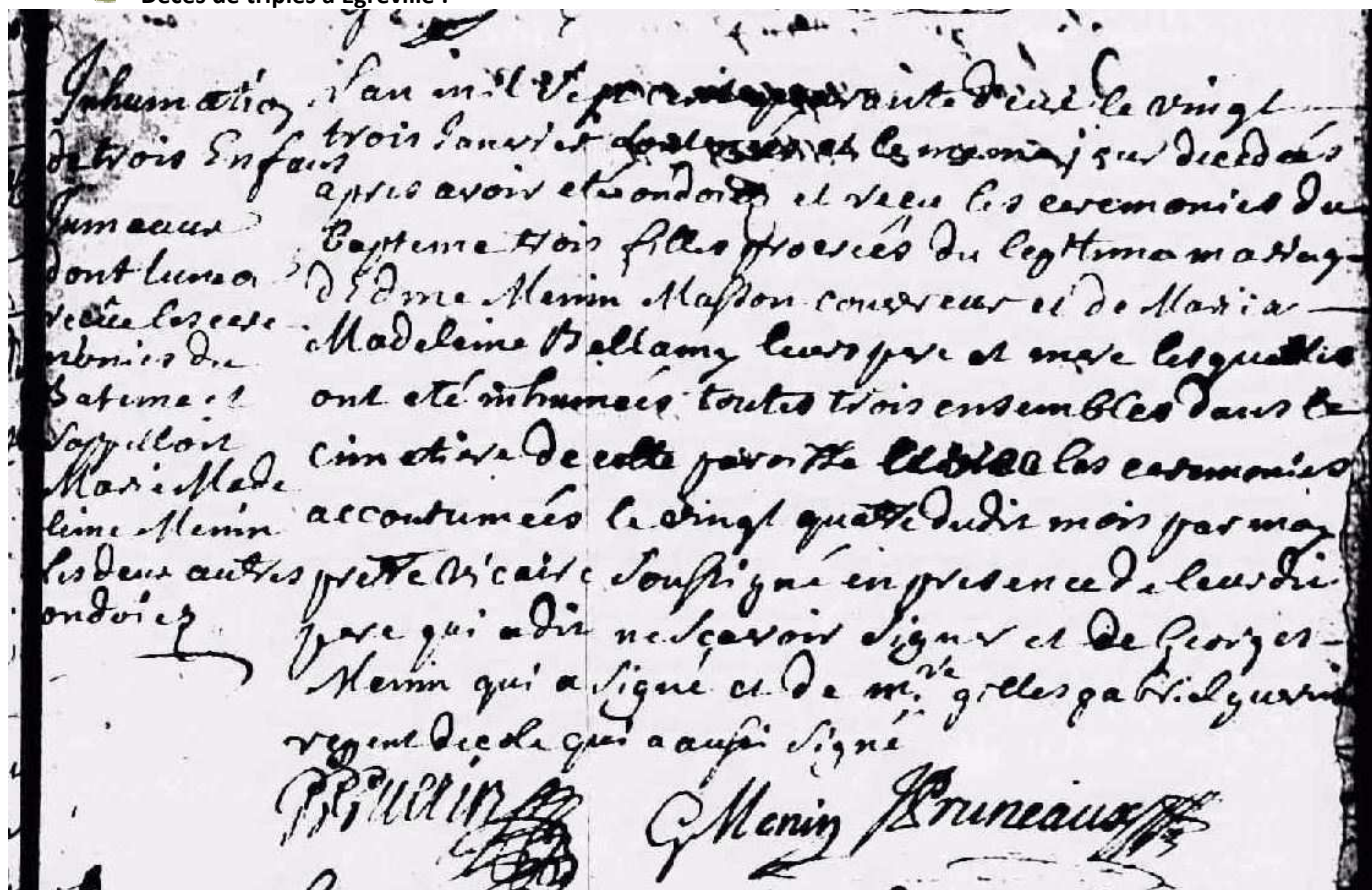 Décès de triplés à Egreville :
Inhumation
de trois Enfans
Jumeaux
dont lune a
recüe les cere
monies du
Bateme et
sappelloit
Marie Made
leine Menin
les deux autres
ondoiez
L'an mil sept cent le vingt
trois Janvier sont et le meme jour decedés
apres avoir eté ondoiez et recu les ceremonies du
Bapteme trois filles procréés du legitime mariage
d'Edme Menin Masson couvreur et de Marie
Madeleine Bellamy leurs pere et mere lesquelles
ont eté inhumées toutes trois ensembles dans le
cimetiere de cette paroisse les ceremonies
accoutumées le vingt quatre dudit mois par moy
pretre vicaire soussigné en presence de leur dit
pere qui a dit ne sçavoir signer et de Georges
Menin qui a signé et de m.re gilles gabriel guerin
regent decole qui a aussi signé
Guerin
G Menin
Pruneaux